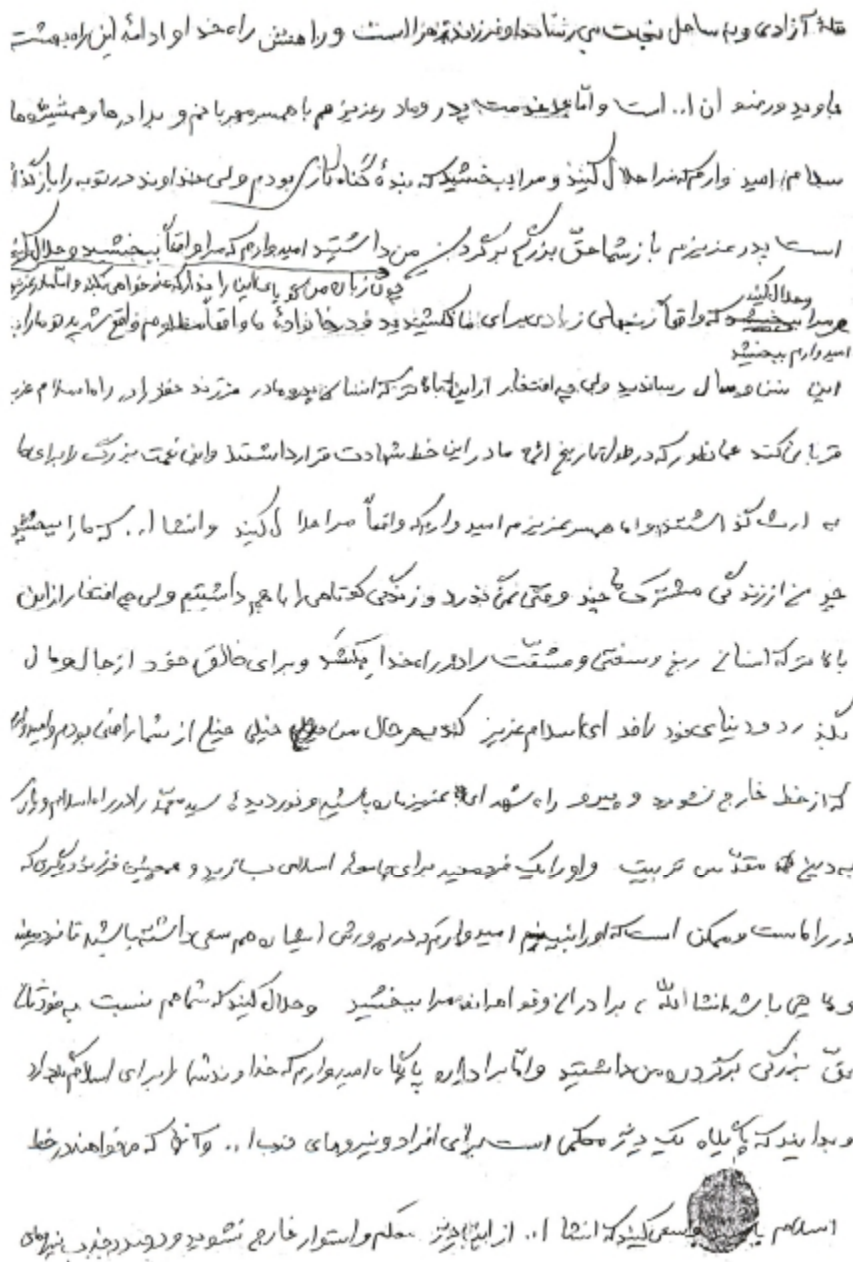 قلهٔ آزادی و به ساحل نجات می رساند و فرزند زهرا است و راهش راه خدا و ادامهٔ این راه بهشت
جاوید و رضوان ا.. است و امّا خدمت پدر و مادر عزیزم با همسر مهربانم و برادرها و همشیره ها
سلام امیدوارم که مرا حلال کنید و مرا ببخشید که بندهٔ گناه کاری بودم ولی خداوند در توبه را باز گذاشته
است پدر عزیزم باز شما حقّ بزرگی بر گردن من داشتید امیدوارم که مرا واقعاً ببخشید و حلال کنید
چون زبان من گویای این را ندارد که عذرخواهی بکند و امّا مادر عزیزم
مرا حلال کنید که واقعاً زحمتهای زیادی برای ما کشیدید و در خانوادهٔ ما واقعاً مظلوم واقع شدید تو ما را به
امیدوارم ببخشید
این سن و سال رساندید ولی چه افتخار از این بالاتر که انسانی پدر و مادر فرزند خود را در راه اسلام عزیز
قربانی کند همانطور که در طول تاریخ ائمهٔ ما در این خط شهادت قرار داشتند و این نعمت بزرگ را برای ما
به ارث گذاشتند و اما همسر عزیزم امیدوارم که واقعاً مرا حلال کنید و انشا ا.. که ما را ببخشید
چون از زندگی مشترک ما چند وقتی نمی گذرد و زندگی کوتاهی را با هم داشتیم ولی چه افتخار از این
بالاتر که انسانی رنج و سختی و مشقّت را در راه خدا بکشد و برای خالق خود از جان و مال
بگذرد و دنیای خود را فدای اسلام عزیز کند بهر حال من خیلی خیلی از شما راضی بودم و امیدوارم
که از خط خارج نشوید و پیرو راه شهدای عزیزمان باشید و نوردیدهٔ سید محمّد را در راه اسلام و برای
به دین مقدّس تربیت و او را یک فرد مفید برای جامعهٔ اسلامی بسازید و همچنین فرزند دیگری که
در راه است و ممکن است که او را نبینم امیدوارم که در پرورش ایشان هم سعی داشته باشید تا فرد مفید
باشد انشا الله ، برادران و خواهرانم مرا ببخشید و حلال کنید که شما هم نسبت به خودتان
حقّ بزرگی بر گردن من داشتید و امّا برادران پایگاه ، امیدوارم که خداوند شما را برای اسلام نگهدارد
و بدانید که پایگاه یک دژ محکمی است برای افراد و نیروهای حزب ا.. و آنها که میخواهند در خط
اسلام سعی کنید که انشا ا.. از این دژ محکم و استوار خارج نشوید و در جذب نیروهای